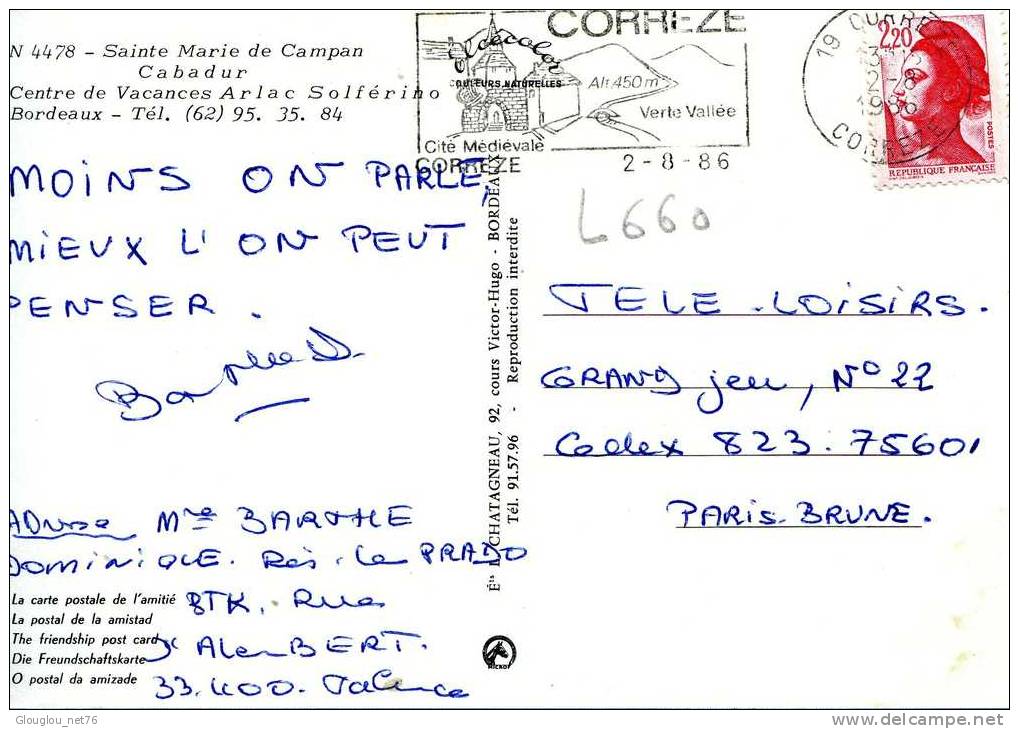 N 4478 - Sainte Marie de Campan
Cabadur
Centre de Vacances Arlac Solférino
Bordeaux - Tél. (62) 95. 35. 84
CORREZE
COULEURS NATURELLES
Alt. 450 m
Verte Vallée
Cité Médiévale
CORREZE
2 - 8 - 86
19
2 - 8
1986
CORREZE
2,20
POSTES
REPUBLIQUE FRANÇAISE
MOINS ON PARLE,
MIEUX L'ON PEUT
PENSER.
L660
TELE-LOISIRS.
GRAND jeu, N° 22
Cedex 823. 75601
PARIS-BRUNE.
Ets CHATAGNEAU, 92, cours Victor-Hugo - BORDEAUX
Tél. 91.57.96 - Reproduction interdite
Adresse Mme BARTHE
DOMINIQUE. Rés. Le PRADO
La carte postale de l'amitié
La postal de la amistad
The friendship post card
Die Freundschaftskarte
O postal da amizade
33.400. Talence
Glouglou_net76
delcampe.net